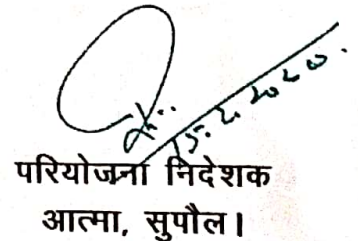 15.2.2020.
परियोजना निदेशक
आत्मा, सुपौल।